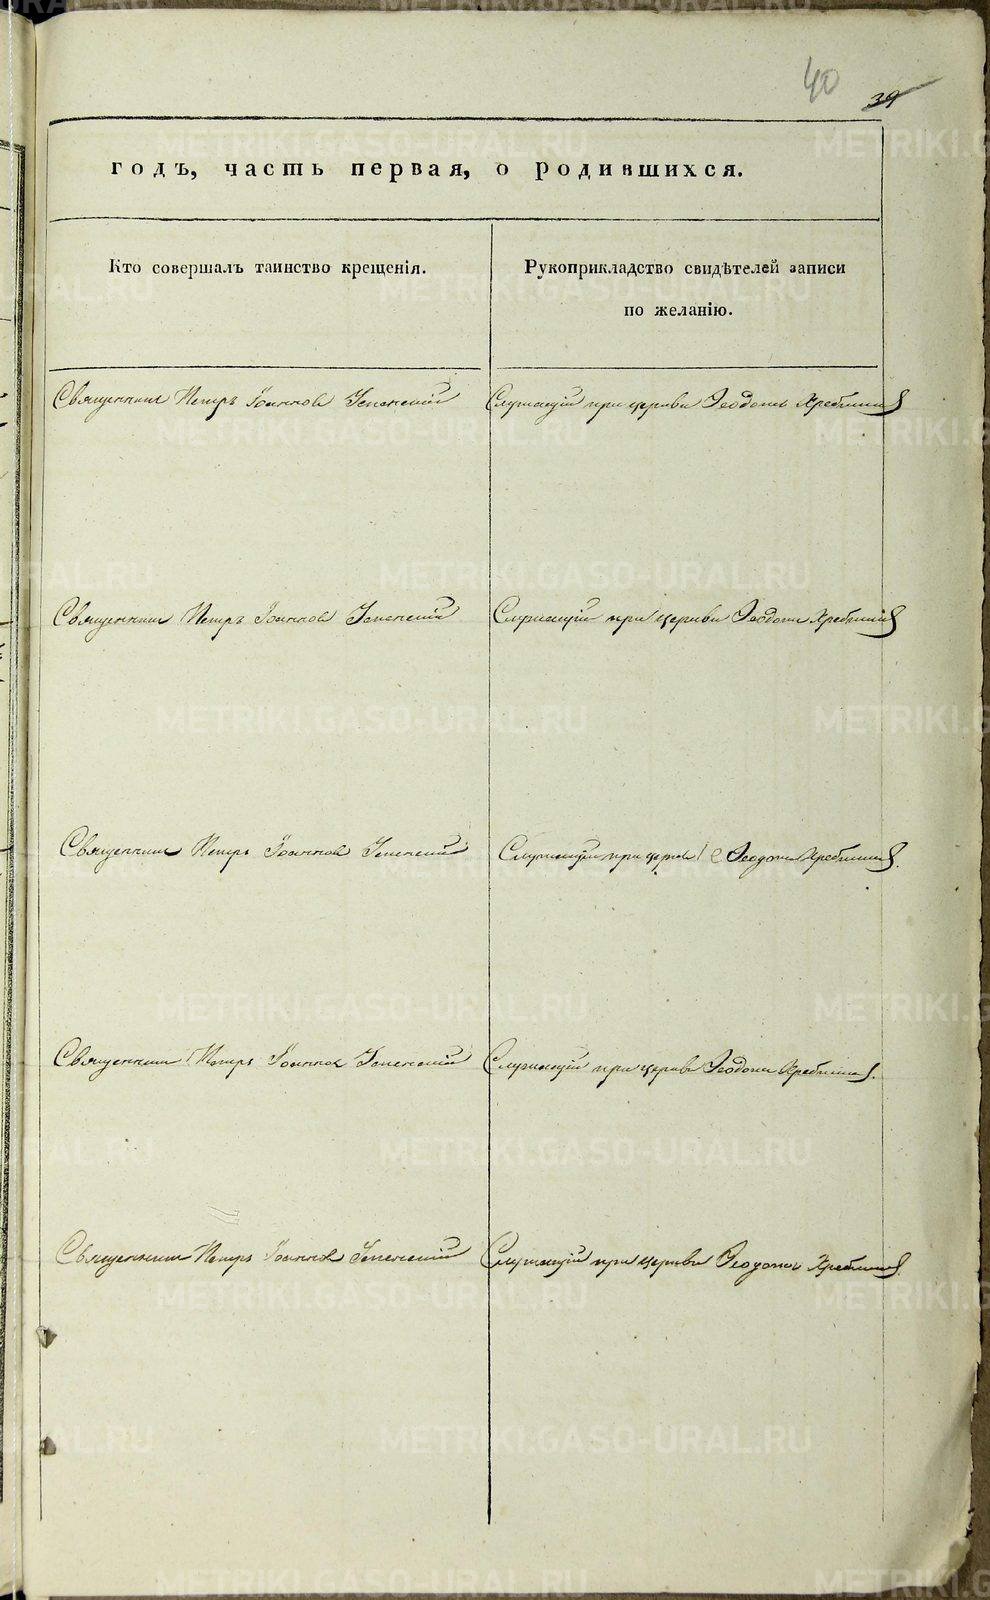 40
39
годъ, часть первая, о родившихся.
Кто совершалъ таинство крещенія.
Рукоприкладство свидѣтелей записи
по желанію.
Священникъ Петръ Іоанновъ Успенскій
Служащій при церкви Ѳеодотъ
Священникъ Петръ Іоанновъ Успенскій
Служащій при церкви Ѳеодотъ
Священникъ Петръ Іоанновъ Успенскій
Служащій при церкви Ѳеодотъ
Священникъ Петръ Іоанновъ Успенскій
Служащій при церкви Ѳеодотъ
Священникъ Петръ Іоанновъ Успенскій
Служащій при церкви Ѳеодотъ
METRIKI.GASO-URAL.RU